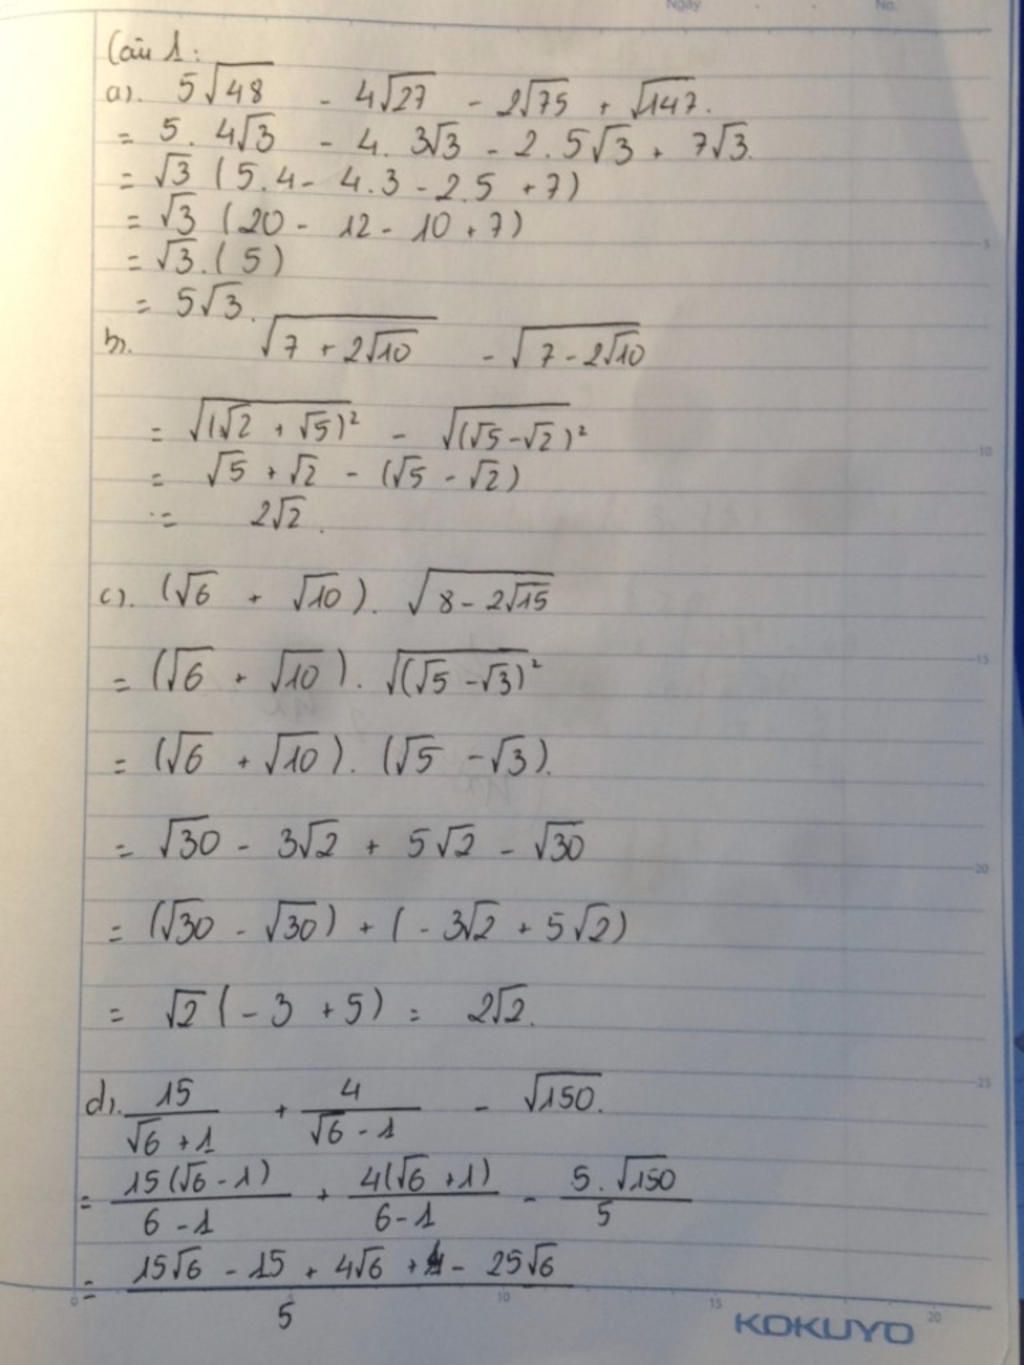 Ngày No.
Câu 1:
a). 5√48 - 4√27 - 2√75 + √147.
= 5. 4√3 - 4. 3√3 - 2.5√3 + 7√3.
= √3 (5.4 - 4.3 - 2.5 + 7)
= √3 (20 - 12 - 10 + 7)
= √3.(5)
= 5√3.
b). √(7 + 2√10) - √(7 - 2√10)
= √((√2 + √5)²) - √((√5 - √2)²)
= √5 + √2 - (√5 - √2)
= 2√2.
c). (√6 + √10). √(8 - 2√15)
= (√6 + √10). √((√5 - √3)²)
= (√6 + √10). (√5 - √3).
= √30 - 3√2 + 5√2 - √30
= (√30 - √30) + (-3√2 + 5√2)
= √2 (-3 + 5) = 2√2.
d). 15/(√6 + 1) + 4/(√6 - 1) - √150.
= 15(√6 - 1)/(6 - 1) + 4(√6 + 1)/(6 - 1) - 5.√150/5
= (15√6 - 15 + 4√6 + 4 - 25√6)/5
5
10
15
20
25
0 5 10 15 20
KOKUYO